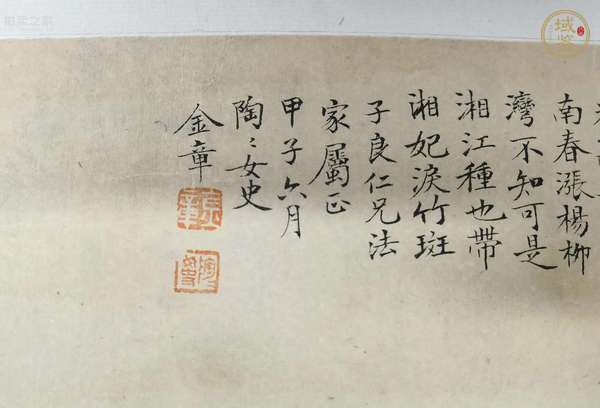 南春漲楊柳
灣不知可是
湘江種也帶
湘妃淚竹斑
子良仁兄法
家屬正
甲子六月
陶〻女史
金章
域鉴